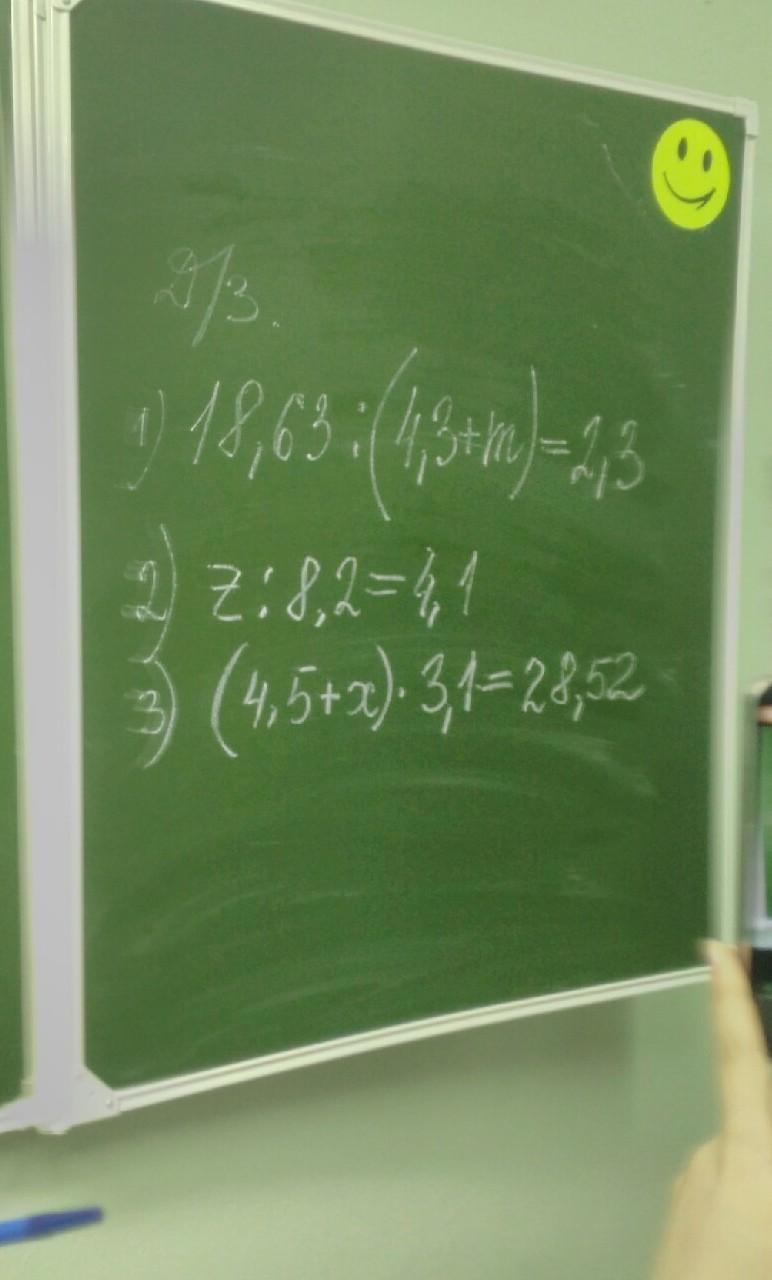 Д/з.
1) 18,63 : (4,3+m) = 2,3
2) z : 8,2 = 4,1
3) (4,5+x) · 3,1 = 28,52